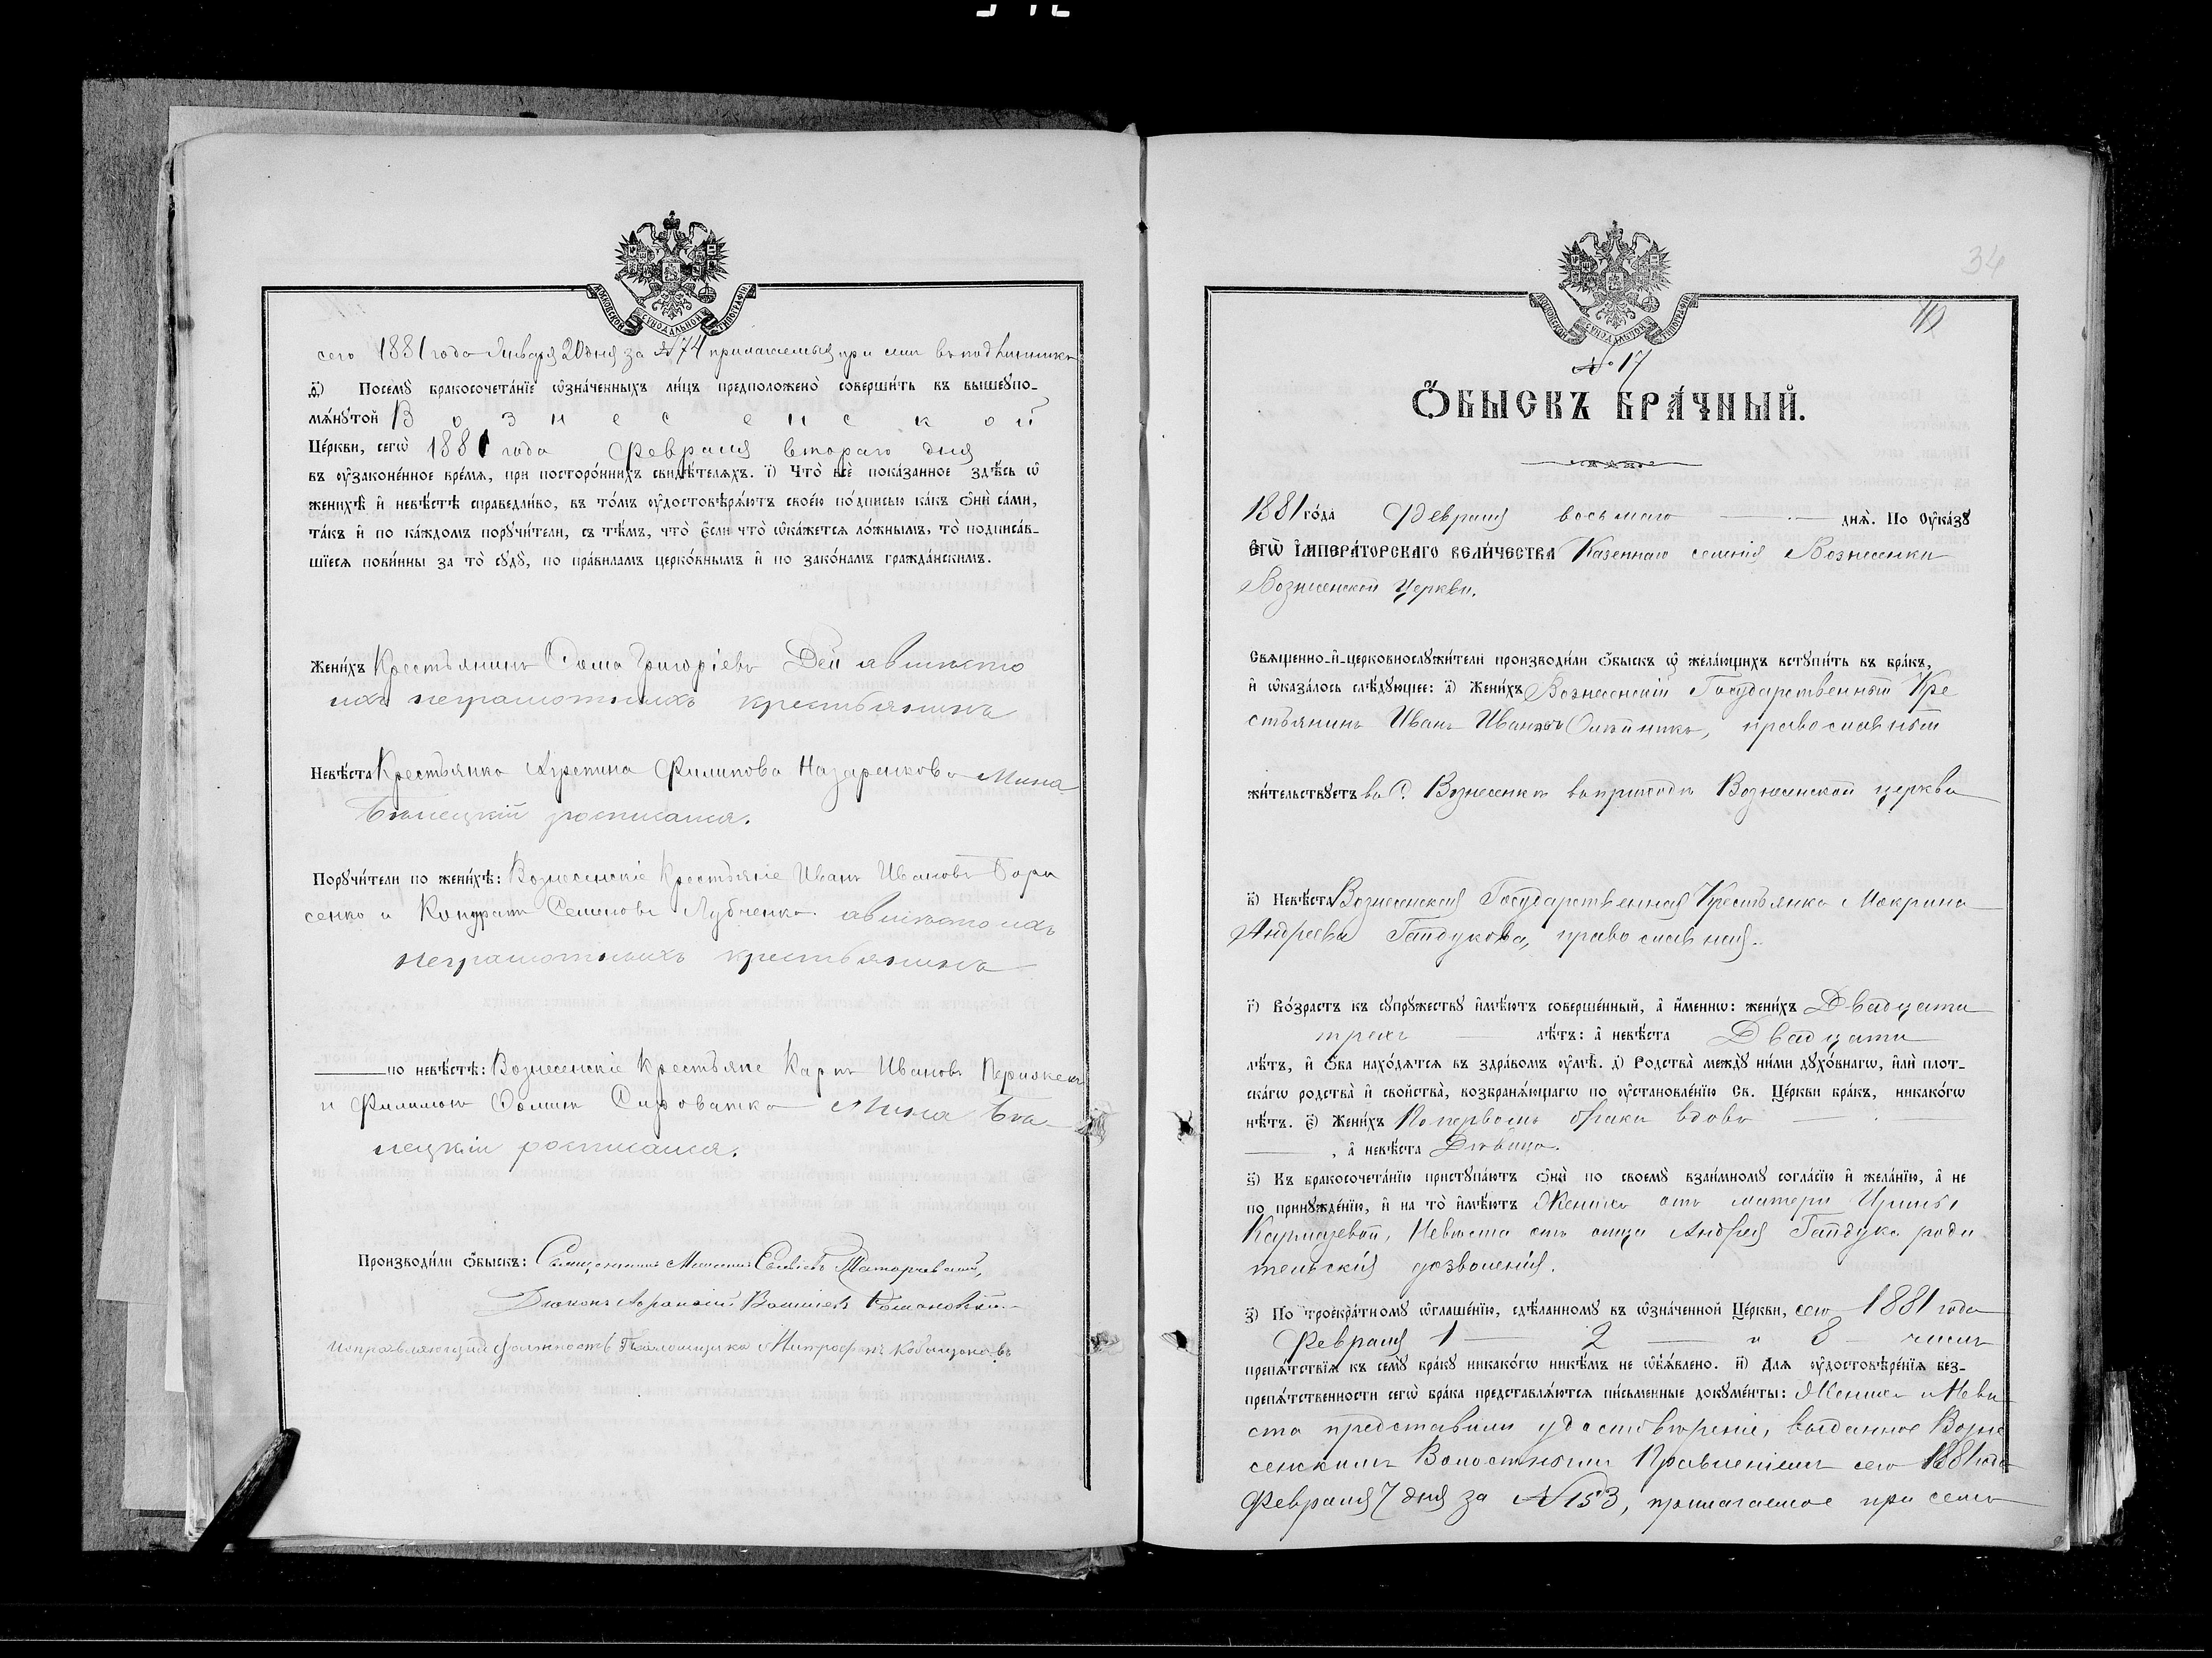 МОСКОВСКОЙ СѴНОДАЛЬНОЙ ТИПОГРАФІИ
сего 1881 года Января 20 дня за № 74 прилагаемыя при сем в подлиннике
Посемꙋ̀ бракосочета́нїе ѡ҆зна́ченныхъ ли́цъ предположено̀ соверши́ть въ вышеꙋпо-
мѧ́нꙋтой Вознесенской
Це́ркви, сегѡ̀ 1881 года Февраля втораго дня
въ ᲂу҆законе́нное вре́мѧ, при посторо́ннихъ свидѣ́телѧхъ. і҃) Что̀ всѐ пока́занное здѣ́сь ѡ҆
женихѣ̀ и҆ невѣ́стѣ справедли́во, въ то́мъ ᲂу҆достовѣрѧ́ютъ свое́ю по́дписью ка́къ ѻ҆нѝ са́ми,
та́къ и҆ по ка́ждомъ порꙋчи́тели, съ тѣ́мъ, что̀ є҆́сли что̀ ѡ҆ка́жетсѧ ло́жнымъ, то̀ подписа́в-
шїесѧ пови́нны за то̀ сꙋдꙋ̀, по пра́виламъ церко́внымъ и҆ по зако́намъ гражда́нскимъ.
Жени́хъ Крестьянинъ Сома Григоріевъ Дей
неграмотныхъ крестьянинъ
Невѣ́ста Крестьянка Агрепина Филипова Назаренкова Мина
Бѣлецкій росписался.
Порꙋчи́тели по женихѣ̀: Вознесенскіе Крестьяніе Иванъ Ивановъ Бори
сенко и Кондратъ Семеновъ Лубченко
неграмотныхъ крестьянинъ
по невѣ́стѣ: Вознесенскіе Крестьяне Карпъ Ивановъ
и Филимонъ Фоминъ Сироватка Мина Бѣ-
лецкій росписался.
Производи́ли ѻ҆́быскъ: Священникъ
Діаконъ Афанасій
исправляющій должность Псаломщика Митрофанъ
34
№ 17
МОСКОВСКОЙ СѴНОДАЛЬНОЙ ТИПОГРАФІИ
Ѻ҆́БЫСКЪ БРА́ЧНЫЙ.
1881 го́да Февраля восьмаго днѧ̀. По ᲂу҆ка́зꙋ
Є҆гѡ̀ И҆мпера́торскаго вели́чества Казеннаго селенія Вознесенки
Вознесенской Церкви.
Свѧще́нно-и҆-церковнослꙋжи́тели производи́ли ѻ҆́быскъ ѡ҆ жела́ющихъ встꙋпи́ть въ бра́къ,
и҆ ѡ҆каза́лось слѣ́дꙋющее: а҃) Жени́хъ Вознесенскій Государственный Кре
стьянинъ Иванъ Ивановъ Олейникъ, православный
жи́тельствꙋетъ въ С. Вознесенкѣ въ приходѣ Вознесенской церкви
в҃) Невѣ́ста Вознесенская Государственная Крестьянка Макрина
Андреева Гайдукова, православная.
г҃) Во́зрастъ къ сꙋпрꙋ́жествꙋ и҆мѣ́ютъ соверше́нный, а҆ и҆́меннѡ: жени́хъ Двадцати
трехъ лѣ́тъ: а҆ невѣ́ста Двадцати
лѣ́тъ, и҆ ѻ҆́ба нахо́дѧтсѧ въ здра́вомъ ᲂу҆мѣ̀. д҃) Родства̀ междꙋ̀ ни́ми дꙋхо́внагѡ, и҆лѝ плот-
ска́гѡ родства̀ и҆ свойства̀, возбранѧ́ющагѡ по ᲂу҆становле́нїю Св. Це́ркви бра́къ, никако́гѡ
нѣ́тъ. є҃) Жени́хъ По первомъ браки вдовъ
, а҆ невѣ́ста Дѣвица.
ѕ҃) Къ бракосочета́нїю пристꙋпа́ютъ ѻ҆нѝ по своемꙋ̀ взаи́мномꙋ согла́сїю и҆ жела́нїю, а҆ не
по принꙋжде́нїю, и҆ на то̀ и҆мѣ́ютъ Женихъ отъ матери Ирины
Кармазевой, Невѣста отъ отца Андрея Гайдука роди
тельскія дозволенія.
з҃) По троекра́тномꙋ ѡ҆глаше́нїю, сдѣ́ланномꙋ въ ѡ҆зна́ченной Це́ркви, сего 1881 года
Февраля 1 2 и 8 чиселъ
препѧ́тствїѧ къ семꙋ̀ бра́кꙋ никако́гѡ никѣ́мъ не ѡ҆б̾ѧ́влено. и҃) Длѧ ᲂу҆достовѣре́нїѧ без-
препѧ́тственности сегѡ̀ бра́ка представлѧ́ютсѧ пи́сьменные докꙋме́нты: Женихъ и Невѣ
ста представили удостовѣреніе, выданное Возне
сенскимъ Волостнымъ Правленіемъ сего 1881 года
Февраля 7 дня за № 153, прилагаемое при семъ